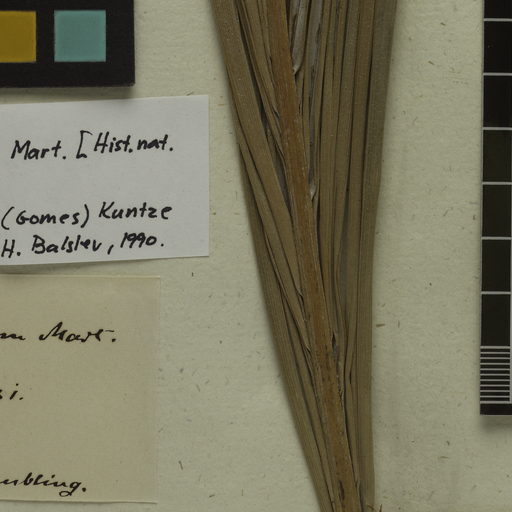 Mart. [Hist. nat.
(Gomes) Kuntze
H. Balslev, 1990.
Mart.
si.